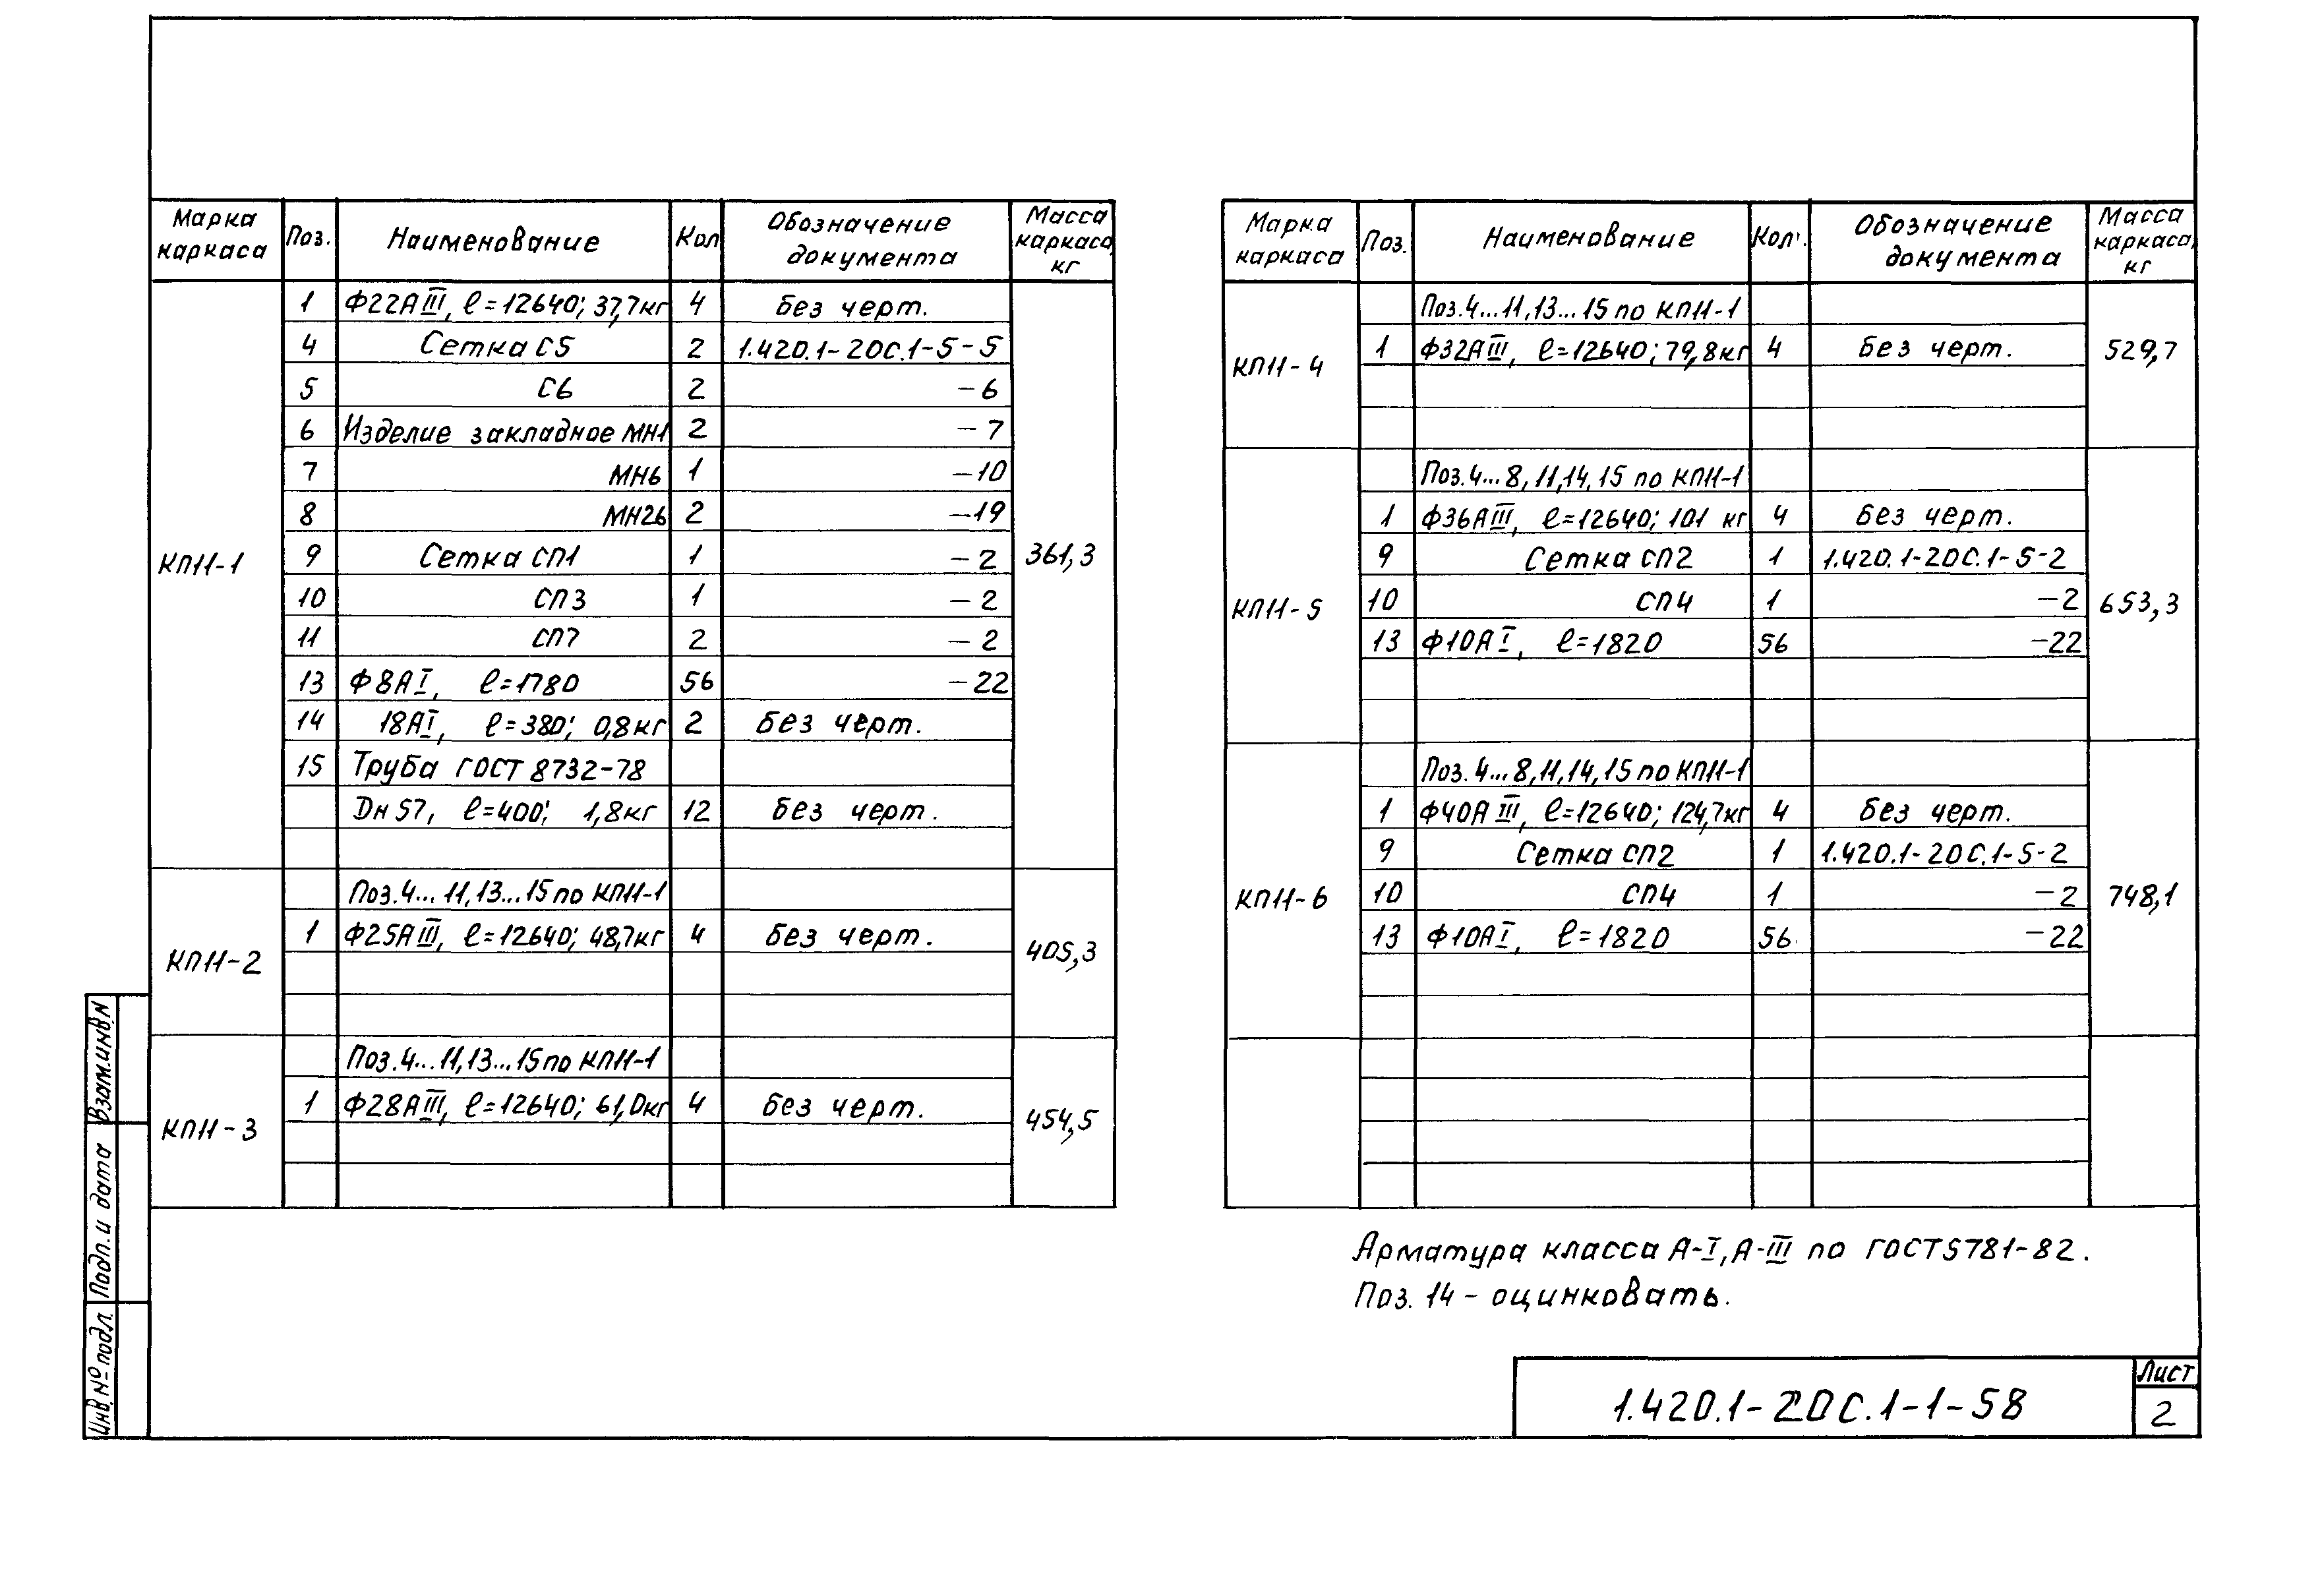 Марка каркаса | Поз. | Наименование | Кол | Обозначение документа | Масса каркаса, кг
КП11-1 | 1 | Ф22АIII, ℓ=12640; 37,7кг | 4 | Без черт. | 361,3
4 | Сетка С5 | 2 | 1.420.1-20С.1-5-5
5 | С6 | 2 | -6
6 | Изделие закладное МН1 | 2 | -7
7 | МН6 | 1 | -10
8 | МН26 | 2 | -19
9 | Сетка СП1 | 1 | -2
10 | СП3 | 1 | -2
11 | СП7 | 2 | -2
13 | Ф8АI, ℓ=1780 | 56 | -22
14 | 18АI, ℓ=380; 0,8кг | 2 | Без черт.
15 | Труба ГОСТ 8732-78
Дн57, ℓ=400; 1,8кг | 12 | Без черт.
КП11-2 | Поз.4...11,13...15 по КП11-1 | 405,3
1 | Ф25АIII, ℓ=12640; 48,7кг | 4 | Без черт.
КП11-3 | Поз.4...11,13...15 по КП11-1 | 454,5
1 | Ф28АIII, ℓ=12640; 61,0кг | 4 | Без черт.
Марка каркаса | Поз. | Наименование | Кол. | Обозначение документа | Масса каркаса, кг
КП11-4 | Поз.4...11,13...15 по КП11-1 | 529,7
1 | Ф32АIII, ℓ=12640; 79,8кг | 4 | Без черт.
КП11-5 | Поз.4...8,11,14,15 по КП11-1 | 653,3
1 | Ф36АIII, ℓ=12640; 101 кг | 4 | Без черт.
9 | Сетка СП2 | 1 | 1.420.1-20С.1-5-2
10 | СП4 | 1 | -2
13 | Ф10АI, ℓ=1820 | 56 | -22
КП11-6 | Поз.4...8,11,14,15 по КП11-1 | 748,1
1 | Ф40АIII, ℓ=12640; 124,7кг | 4 | Без черт.
9 | Сетка СП2 | 1 | 1.420.1-20С.1-5-2
10 | СП4 | 1 | -2
13 | Ф10АI, ℓ=1820 | 56 | -22
Арматура класса А-I, А-III по ГОСТ 5781-82.
Поз. 14 - оцинковать.
Взам.инв.N
Подп. и дата
Инв.№ подл.
1.420.1-20С.1-1-58
Лист
2